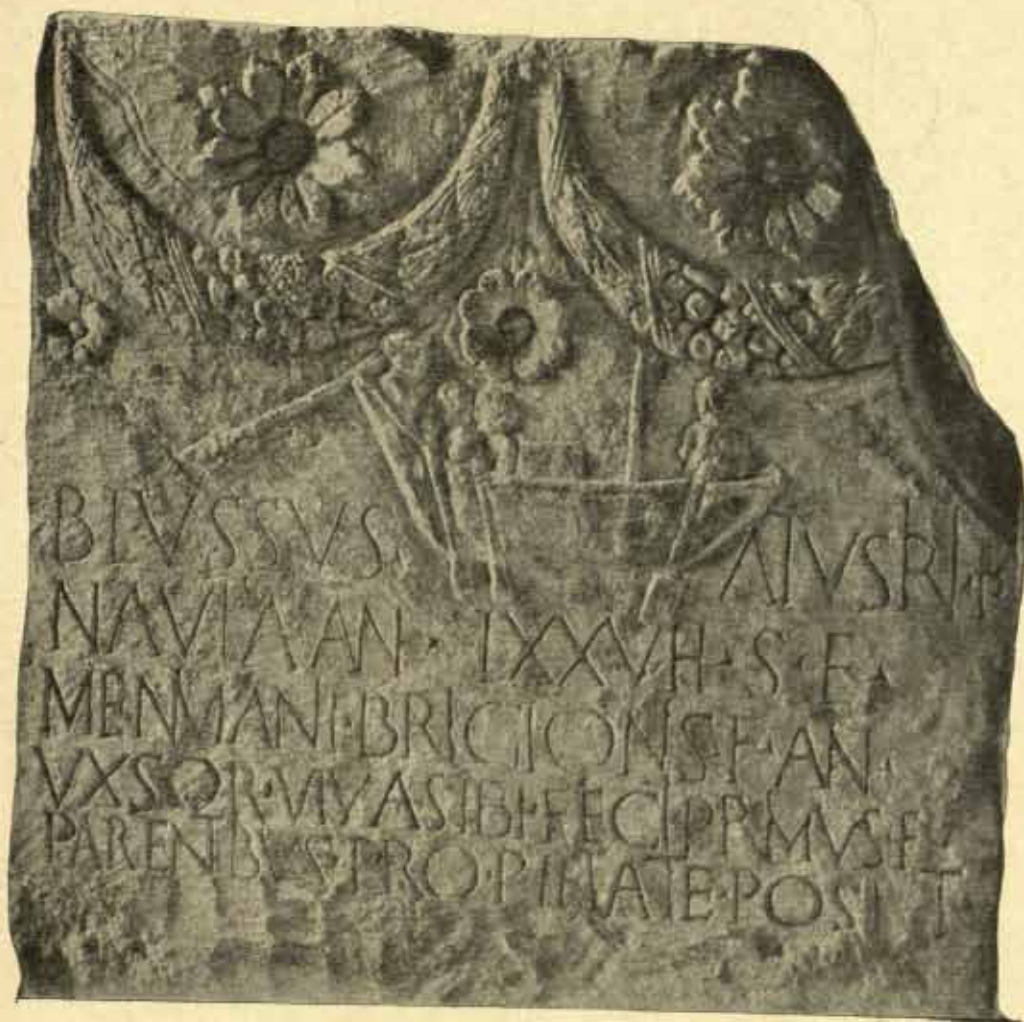 BLVSSVS ATVSIRI·F
NAVTA AN · LXXV H · S · E ·
MENIMANI·BRIGIONIS·F·AN·
VXSOR·VIVA·SIBI·FECIT·PRIMVS·F
PARENTIBVS·PRO·PIETATE·POSIT